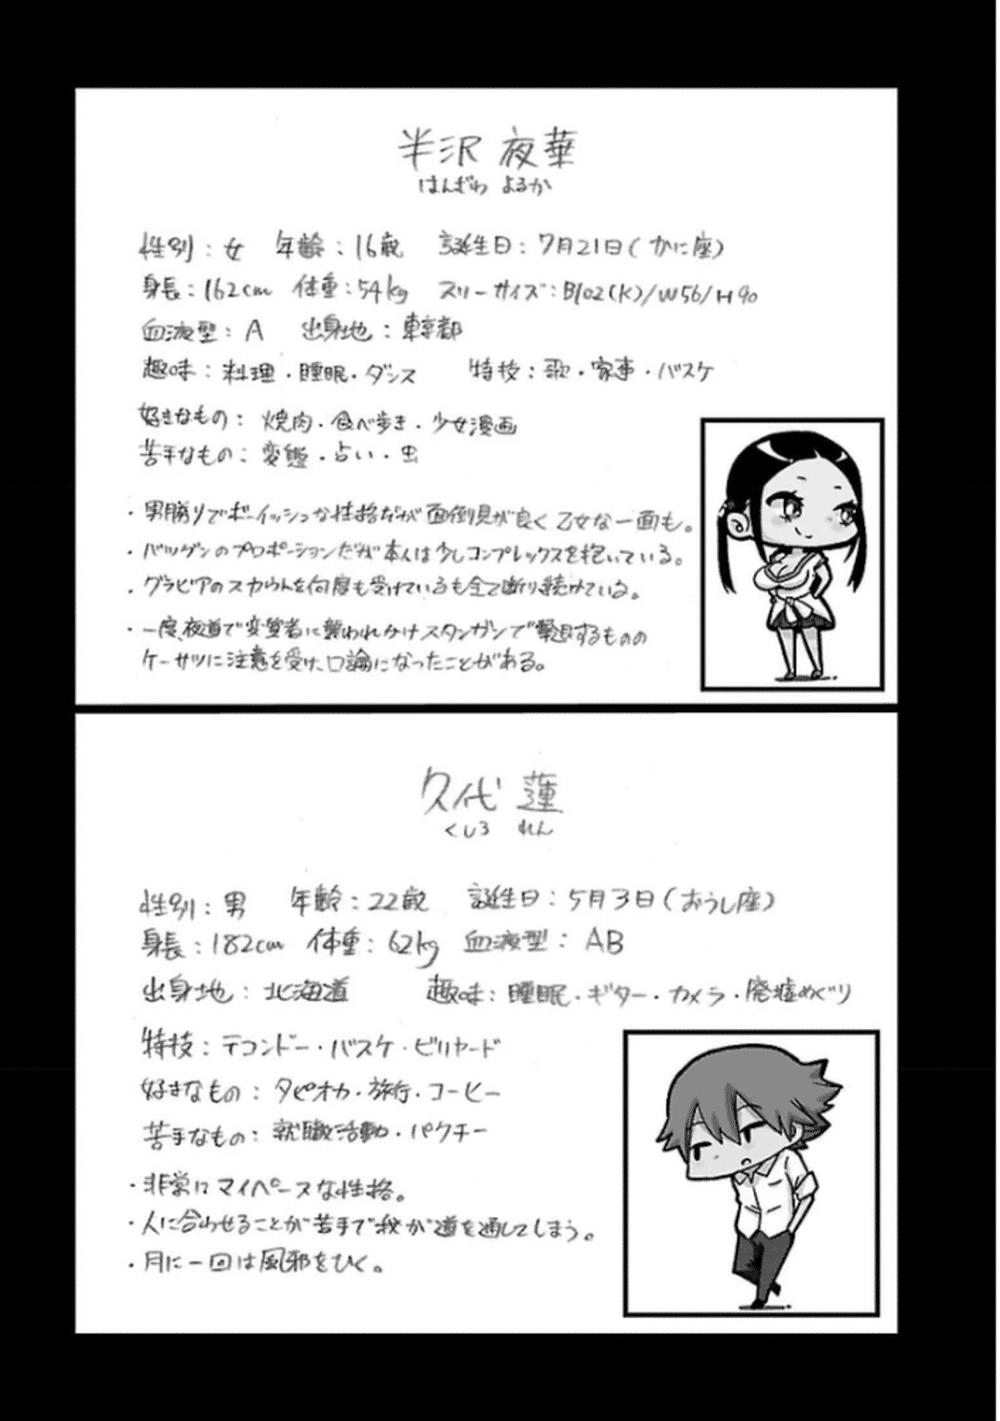 半沢 夜華
はんざわ よるか
性別：女 年齢：16歳 誕生日：7月21日（かに座）
身長：162cm 体重：54kg スリーサイズ：B102(K)/W56/H90
血液型：A 出身地：東京都
趣味：料理・睡眠・ダンス 特技：歌・家事・バスケ
好きなもの：焼肉・食べ歩き・少女漫画
苦手なもの：変態・占い・虫
・男勝りでボーイッシュな性格だが面倒見が良く乙女な一面も。
・バツグンのプロポーションだが本人は少しコンプレックスを抱いている。
・グラビアのスカウトを何度も受けているも全て断り続けている。
・一度、夜道で変質者に襲われかけスタンガンで撃退するものの
ケーサツに注意を受け、口論になったことがある。
久代 蓮
くしろ れん
性別：男 年齢：22歳 誕生日：5月3日（おうし座）
身長：182cm 体重：62kg 血液型：AB
出身地：北海道 趣味：睡眠・ギター・カメラ・廃墟めぐり
特技：テコンドー・バスケ・ビリヤード
好きなもの：タピオカ・旅行・コーヒー
苦手なもの：就職活動・パクチー
・非常にマイペースな性格。
・人に合わせることが苦手で我が道を通してしまう。
・月に一回は風邪をひく。